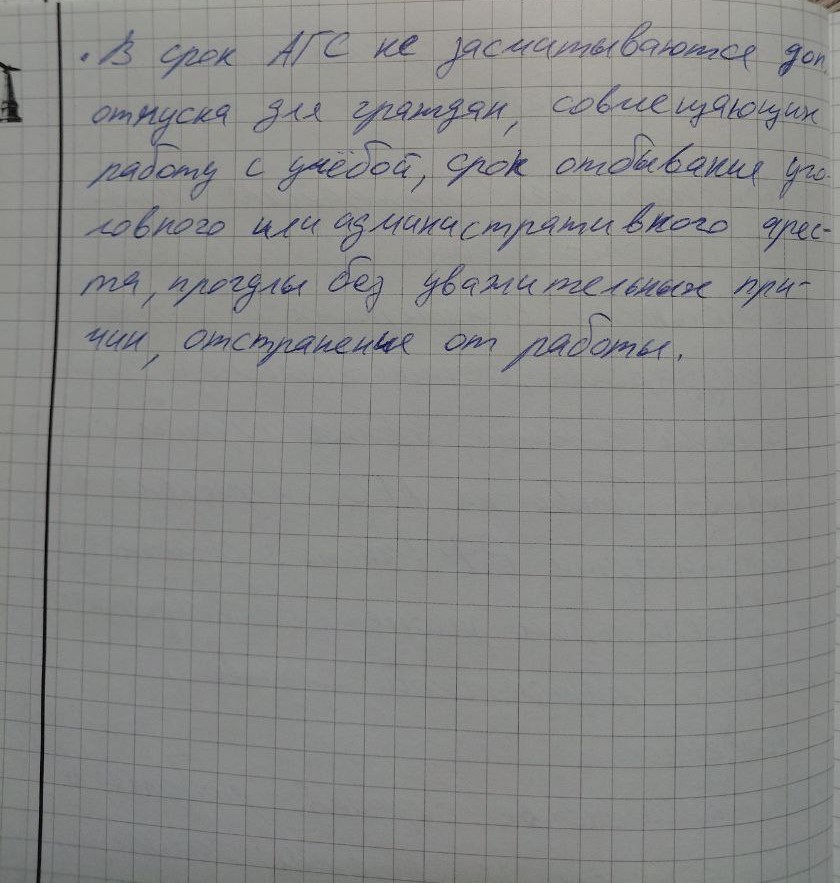 . В срок АГС не засчитываются доп.
отпуска для граждан, совмещающих
работу с учёбой, срок отбывания уго-
ловного или административного арес-
та, прогулы без уважительных при-
чин, отстранение от работы.